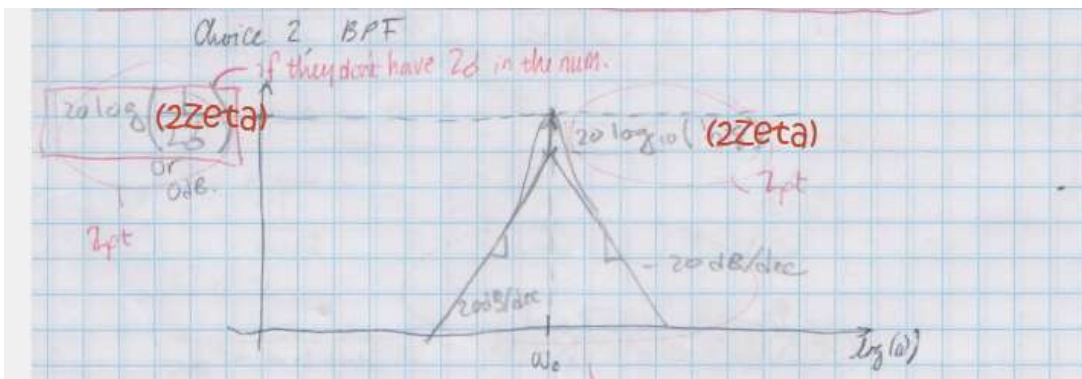 Choice 2 BPF
if they don't have 2δ in the num.
20 log (2Zeta)
or
0dB.
2pt
20 log10 ( (2Zeta)
2pt
20dB/dec
- 20 dB/dec
ω₀
log(ω)